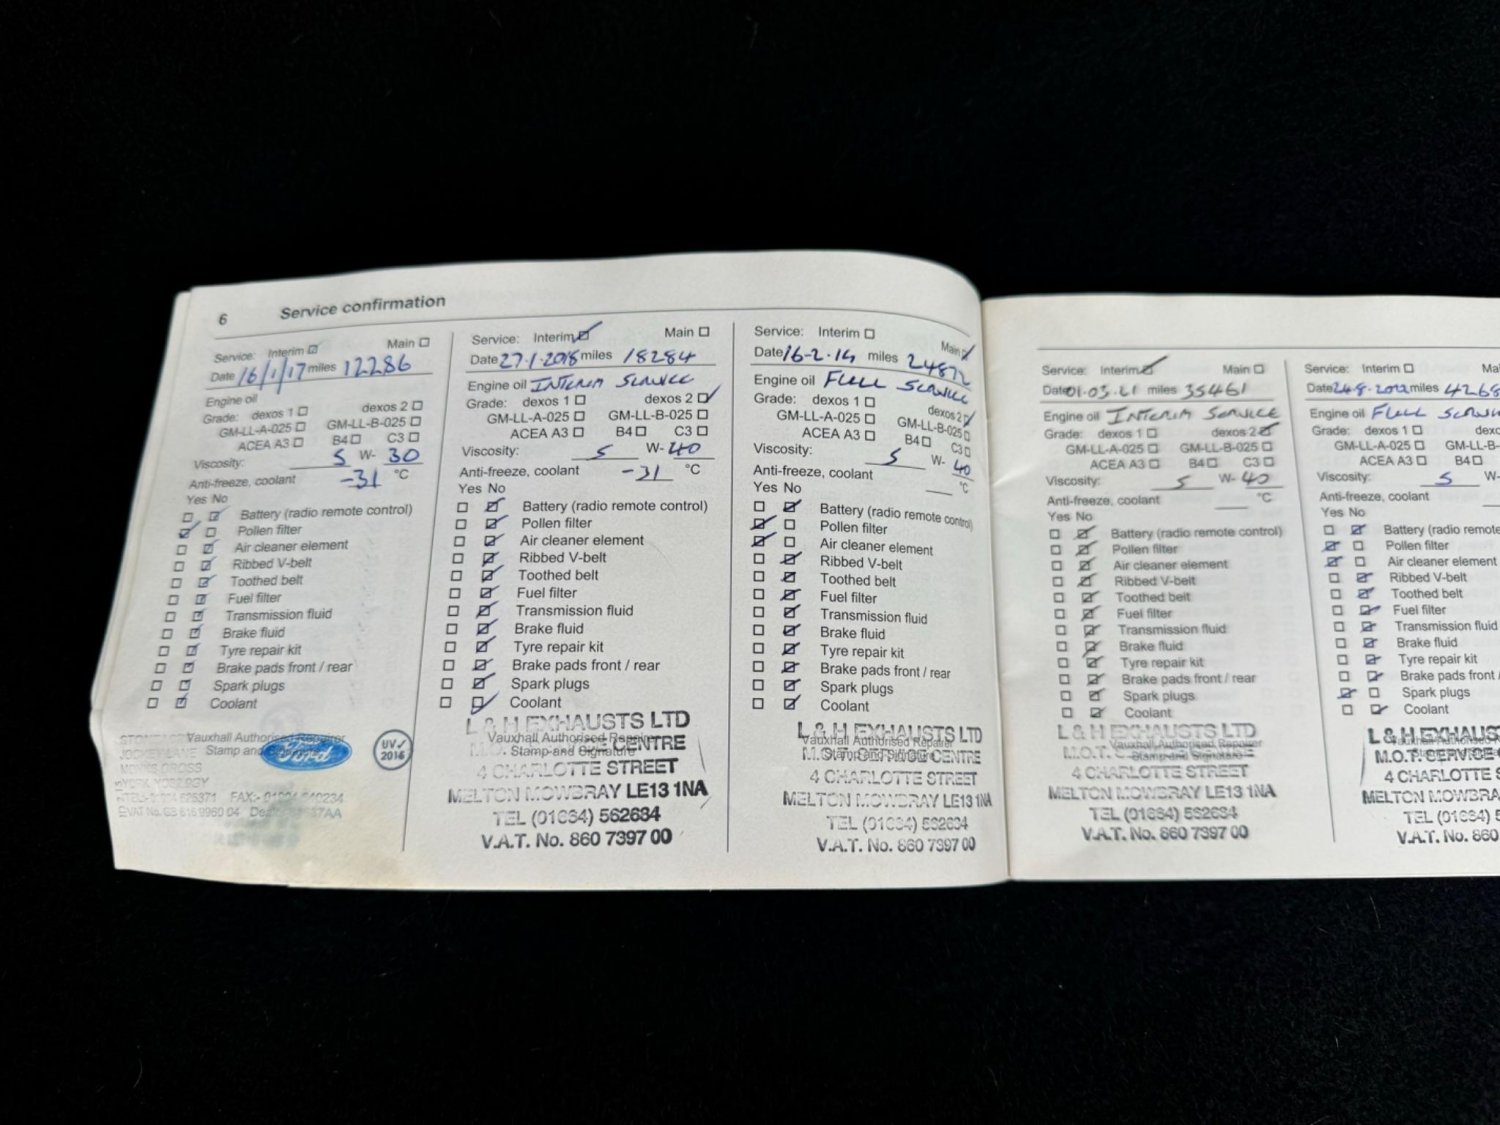 6 Service confirmation
Service: Interim Main
Date 16/1/17 miles 12286
Engine oil
Grade: dexos 1 dexos 2
GM-LL-A-025 GM-LL-B-025
ACEA A3 B4 C3
Viscosity: 5 W- 30
Anti-freeze, coolant -31 °C
Yes No
Battery (radio remote control)
Pollen filter
Air cleaner element
Ribbed V-belt
Toothed belt
Fuel filter
Transmission fluid
Brake fluid
Tyre repair kit
Brake pads front / rear
Spark plugs
Coolant
Vauxhall Authorised Repairer
Stamp and
Ford
UV✓
2016
Service: Interim Main
Date 27-1-2018 miles 18284
Engine oil INTERIM SERVICE
Grade: dexos 1 dexos 2
GM-LL-A-025 GM-LL-B-025
ACEA A3 B4 C3
Viscosity: 5 W- 40
Anti-freeze, coolant -31 °C
Yes No
Battery (radio remote control)
Pollen filter
Air cleaner element
Ribbed V-belt
Toothed belt
Fuel filter
Transmission fluid
Brake fluid
Tyre repair kit
Brake pads front / rear
Spark plugs
Coolant
L & H EXHAUSTS LTD
Vauxhall Authorised Repairer
Stamp and Signature
CENTRE
4 CHARLOTTE STREET
MELTON MOWBRAY LE13 1NA
TEL (01664) 562634
V.A.T. No. 860 7397 00
Service: Interim Main
Date 16-2-19 miles 24872
Engine oil FULL SERVICE
Grade: dexos 1 dexos 2
GM-LL-A-025 GM-LL-B-025
ACEA A3 B4 C3
Viscosity: 5 W- 40
Anti-freeze, coolant °C
Yes No
Battery (radio remote control)
Pollen filter
Air cleaner element
Ribbed V-belt
Toothed belt
Fuel filter
Transmission fluid
Brake fluid
Tyre repair kit
Brake pads front / rear
Spark plugs
Coolant
L & H EXHAUSTS LTD
Vauxhall Authorised Repairer
CENTRE
4 CHARLOTTE STREET
MELTON MOWBRAY LE13 1NA
TEL (01664) 562634
V.A.T. No. 860 7397 00
Service: Interim Main
Date 01-03-21 miles 35461
Engine oil INTERIM SERVICE
Grade: dexos 1 dexos 2
GM-LL-A-025 GM-LL-B-025
ACEA A3 B4 C3
Viscosity: 5 W- 40
Anti-freeze, coolant °C
Yes No
Battery (radio remote control)
Pollen filter
Air cleaner element
Ribbed V-belt
Toothed belt
Fuel filter
Transmission fluid
Brake fluid
Tyre repair kit
Brake pads front / rear
Spark plugs
Coolant
L & H EXHAUSTS LTD
M.O.T. Vauxhall Authorised Repairer
Stamp and Signature
4 CHARLOTTE STREET
MELTON MOWBRAY LE13 1NA
TEL (01664) 562634
V.A.T. No. 860 7397 00
Service: Interim Ma
Date 24-8-2022 miles 4268
Engine oil FULL SERVI
Grade: dexos 1 dexo
GM-LL-A-025 GM-LL-B-
ACEA A3 B4
Viscosity: 5 W-
Anti-freeze, coolant
Yes No
Battery (radio remote
Pollen filter
Air cleaner element
Ribbed V-belt
Toothed belt
Fuel filter
Transmission fluid
Brake fluid
Tyre repair kit
Brake pads front /
Spark plugs
Coolant
L & H EXHAUSTS
M.O.T. SERVICE
4 CHARLOTTE S
MELTON MOWBRA
TEL (01664) 5
V.A.T. No. 860